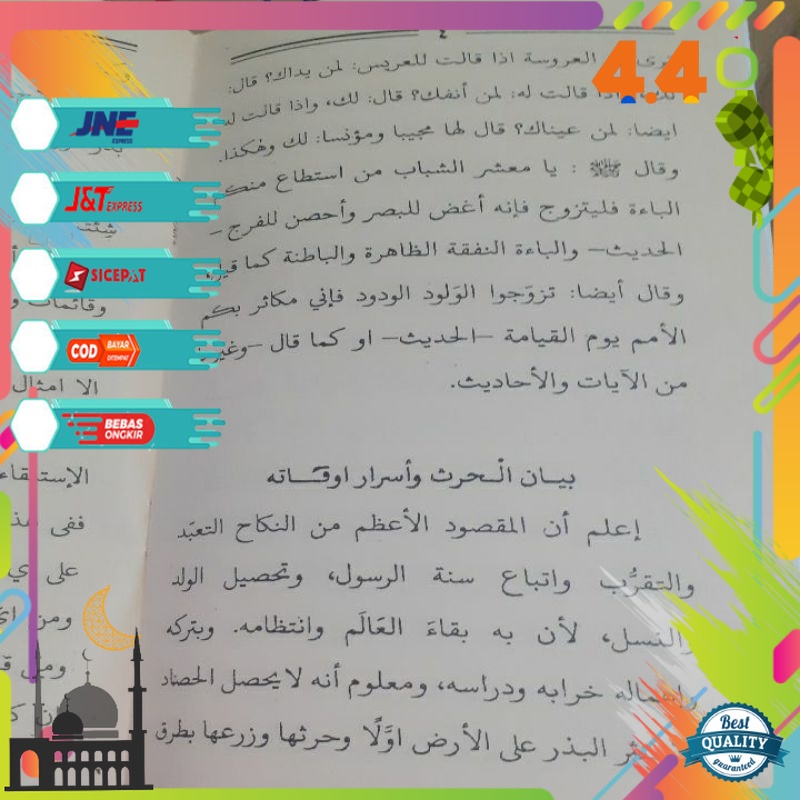 ٤
4.4
العروسة اذا قالت للعريس: لمن يداك؟ قال:
قالت له: لمن أنفك؟ قال: لك، واذا قالت له
ايضا: لمن عيناك؟ قال لها مجيبا ومؤنسا: لك وهكذا.
وقال ﷺ : يا معشر الشباب من استطاع منكم
الباءة فليتزوج فإنه أغض للبصر وأحصن للفرج –
الحديث– والباءة النفقة الظاهرة والباطنة كما قيل،
وقال أيضا: تزوّجوا الوَلود الودود فإني مكاثر بكم
الأمم يوم القيامة –الحديث– او كما قال –وغير
من الآيات والأحاديث.
بيان الْحرث وأسرار اوقاته
إعلم أن المقصود الأعظم من النكاح التعبّد
والتقرُّب واتباع سنة الرسول، وتحصيل الولد
والنسل، لأن به بقاءَ العَالَم وانتظامه. وبتركه
واهماله خرابه ودراسه، ومعلوم أنه لا يحصل الحصاد
البذر على الأرض اوَّلًا وحرثها وزرعها بطرق
JNE
EXPRESS
J&T EXPRESS
SICEPAT
COD
BAYAR
DITEMPAT
BEBAS
ONGKIR
وقائمات
الا امثال
ففى
على
ومن
Best
QUALITY
guaranteed